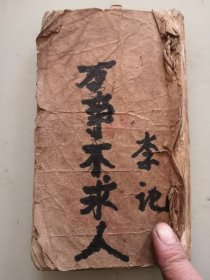 万事不求人
李记